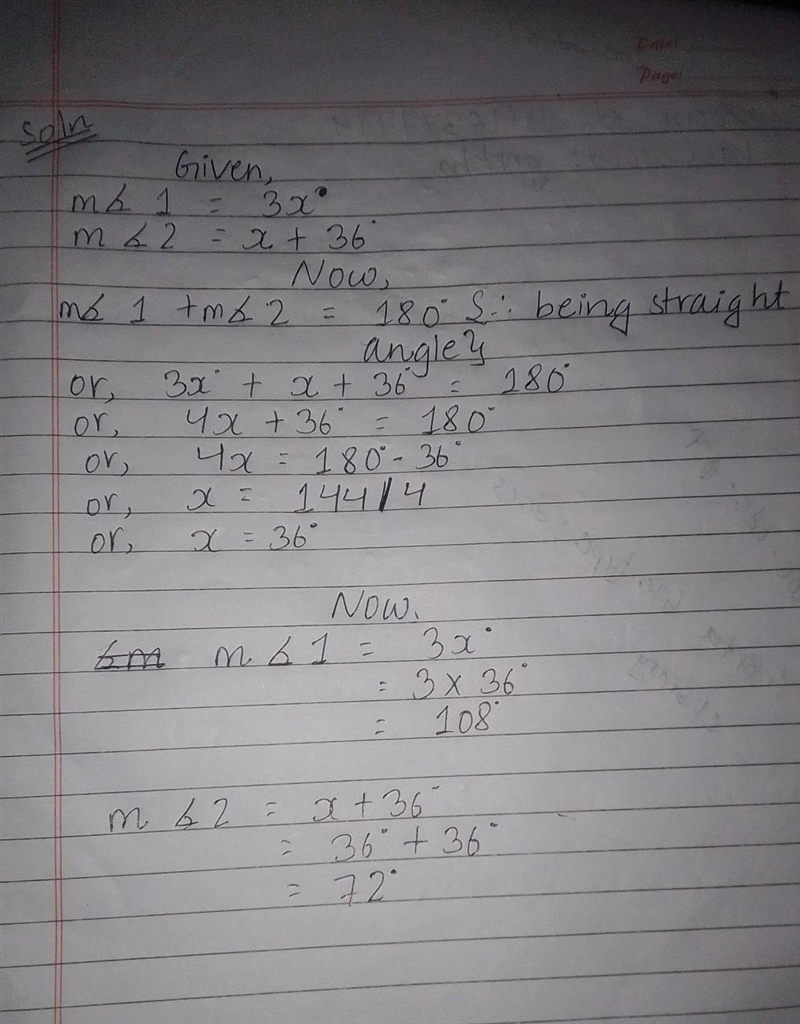 Date:
Page:
Soln
Given,
m∡ 1 = 3x°
m ∡2 = x + 36°
Now,
m∡ 1 + m∡ 2 = 180° {∴ being straight
angle}
or, 3x° + x + 36° = 180°
or, 4x + 36° = 180°
or, 4x = 180° - 36°
or, x = 144/4
or, x = 36°
Now.
m ∡1 = 3x°
= 3 × 36°
= 108°
m ∡2 = x + 36°
= 36° + 36°
= 72°